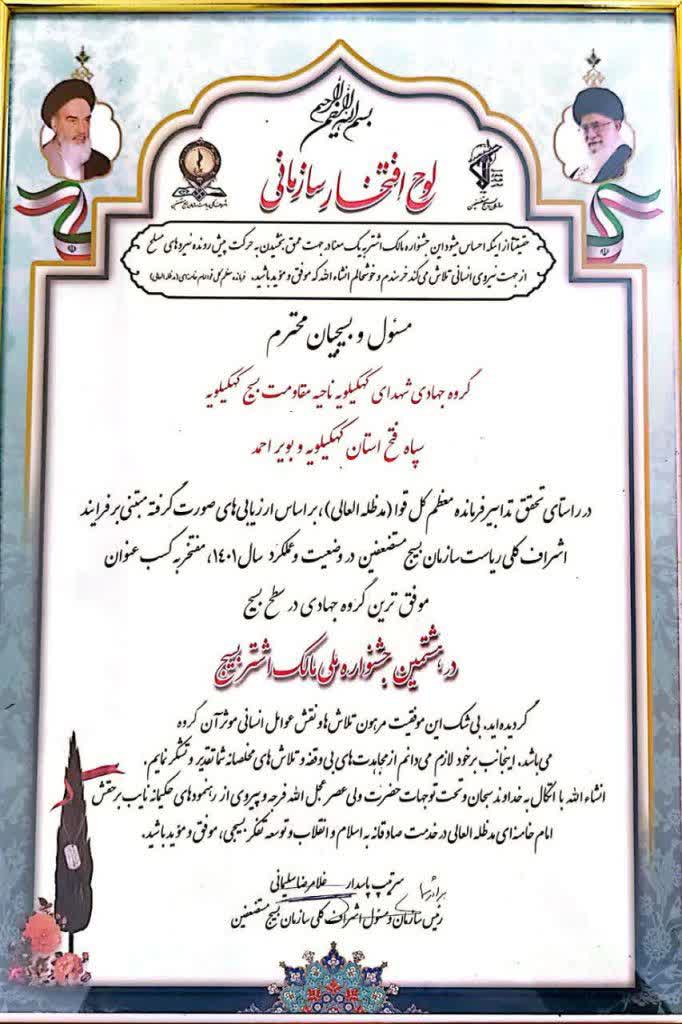 بسم الله الرحمن الرحیم
لوح افتخار سازمانی
حقیقتا از اینکه احساس میشود این جشنواره مالک اشتر به یک سنا در جهت عمق بخشیدن به حرکت پیش رونده نیروهای مسلح
از جهت نیروی انسانی تلاش می‌کند خرسندم و خوشحالم انشاءالله که موفق و مؤید باشید.
مسئول و بسیجیان محترم
گروه جهادی شهدای کهگیلویه ناحیه مقاومت بسیج کهگیلویه
سپاه فتح استان کهگیلویه و بویر احمد
در راستای تحقق تدابیر فرمانده معظم کل قوا (مدظله العالی)، بر اساس ارزیابی های صورت گرفته مبتنی بر فرایند
اشراف کلی ریاست سازمان بسیج مستضعفین در وضعیت و عملکرد سال ۱۴۰۱، مفتخر به کسب عنوان
موفق ترین گروه جهادی در سطح بسیج
در هشتمین جشنواره ملی مالک اشتر بسیج
گردیده‌اید. بی شک این موفقیت مرهون تلاش ها و نقش عوامل انسانی موثر آن گروه
می‌باشد. اینجانب بر خود لازم می‌دانم از مجاهدت های بی وقفه و تلاش های مخلصانه شما تقدیر و تشکر نمایم.
انشاء الله با اتکال به خداوند سبحان و تحت توجهات حضرت ولی عصر عجل الله فرجه و پیروی از رهنمودهای حکیمانه نایب برحقش
امام خامنه‌ای مدظله العالی در خدمت صادقانه به اسلام و انقلاب و توسعه تفکر بسیجی، موفق و مؤید باشید.
برادر شما
سرتیپ پاسدار غلامرضا سلیمانی
رئیس سازمان و مسئول اشراف کلی سازمان بسیج مستضعفین